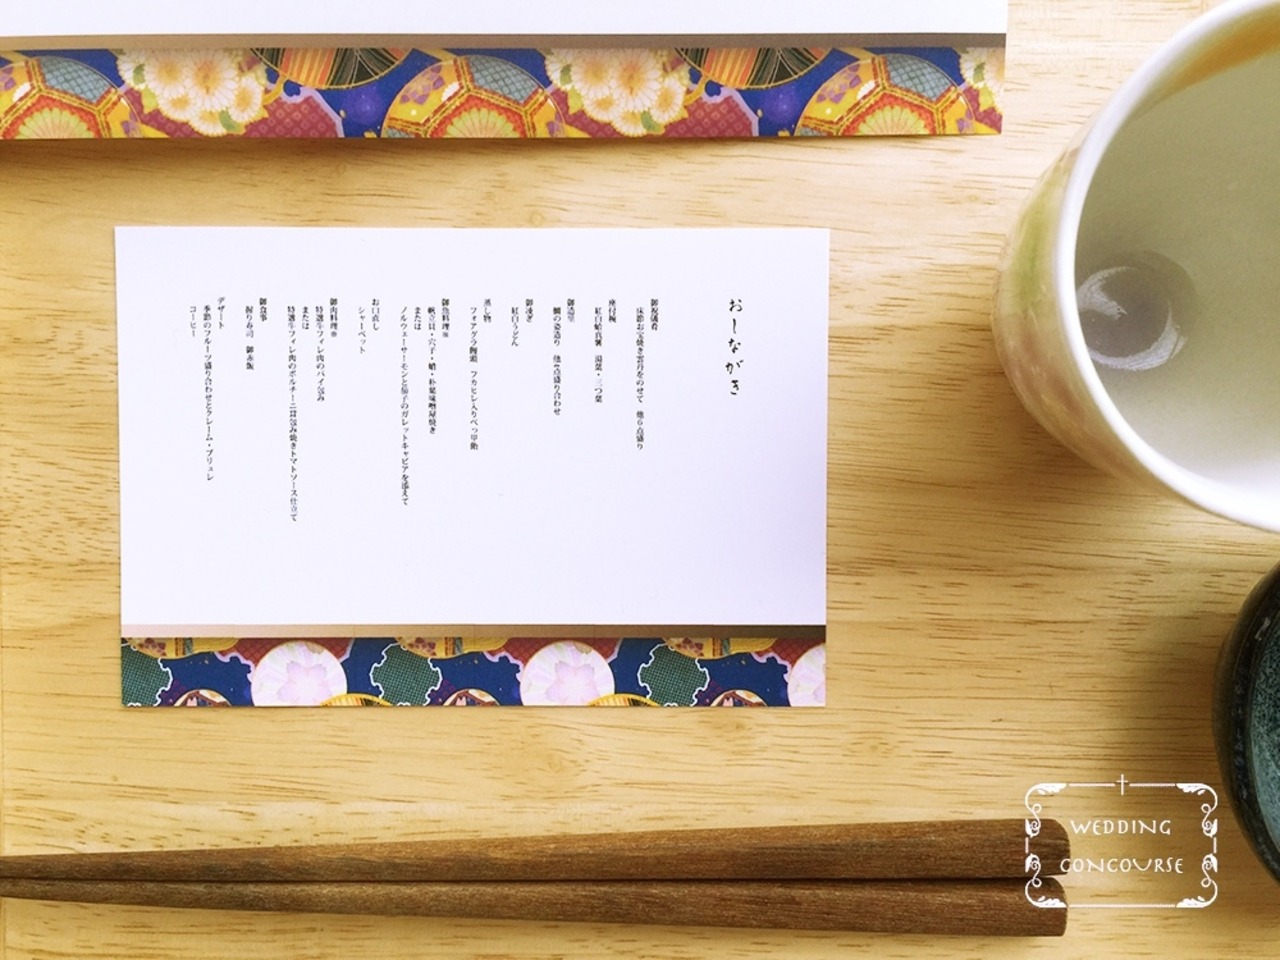 おしながき
御祝儀肴
床節お宝焼き雲丹をのせて 他6点盛り
座付椀
紅白蛤真薯 湯葉・三つ葉
御造里
鯛の姿造り 他4点盛り合わせ
御凌ぎ
紅白うどん
蒸し物
フォアグラ饅頭 フカヒレ入りべっ甲餡
御魚料理※
帆立貝・穴子・蛸・朴葉味噌焼き
または
ノルウェーサーモンと茄子のガレットキャビアを添えて
お口直し
シャーベット
御肉料理※
特選牛フィレ肉のパイ包み
または
特選牛フィレ肉のポルチーニ茸包み焼きトマトソース仕立て
御食事
握り寿司 御赤飯
デザート
季節のフルーツ盛り合わせとクレーム・ブリュレ
コーヒー
WEDDING
CONCOURSE